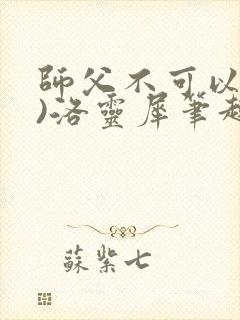 師父不可以
)洛靈犀筆趣
蘇紫七